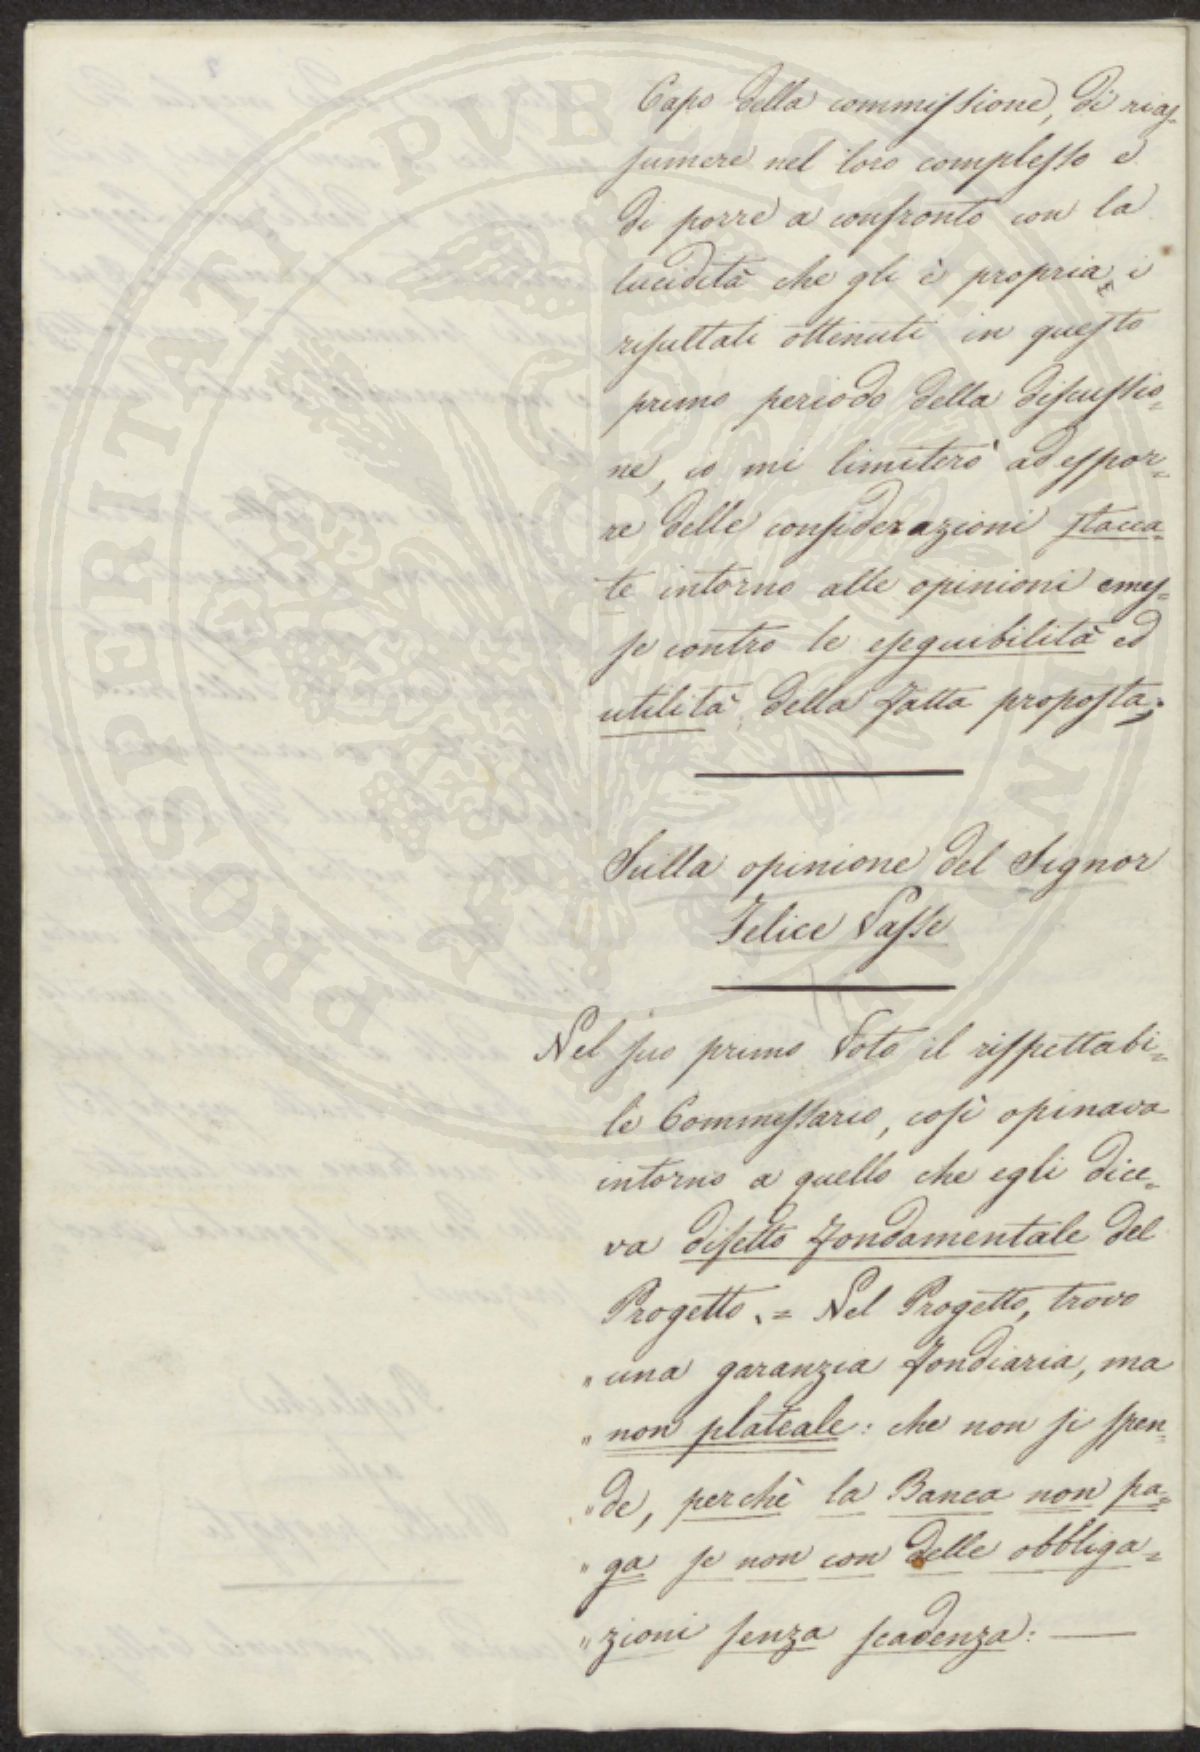 Capo della commissione, di rias-
sumere nel loro complesso e
di porre a confronto con la
lucidità che gli è propria, i
risultati ottenuti in questo
primo periodo della discussio-
ne, io mi limiterò ad espor-
re delle considerazioni stacca-
te intorno alle opinioni emes-
se contro le eseguibilità ed
utilità della fatta proposta;
Sulla opinione del Signor
Felice Vasse
Nel suo primo Voto il rispettabi-
le Commessario, così opinava
intorno a quello che egli dice-
va difetto fondamentale del
Progetto. = Nel Progetto, trovo
" una garanzia fondiaria, ma
" non plateale: che non si spen-
" de, perchè la Banca non pa-
" ga se non con delle obbliga-
" zioni senza scadenza: —
PROSPERITATI PVBLICAE